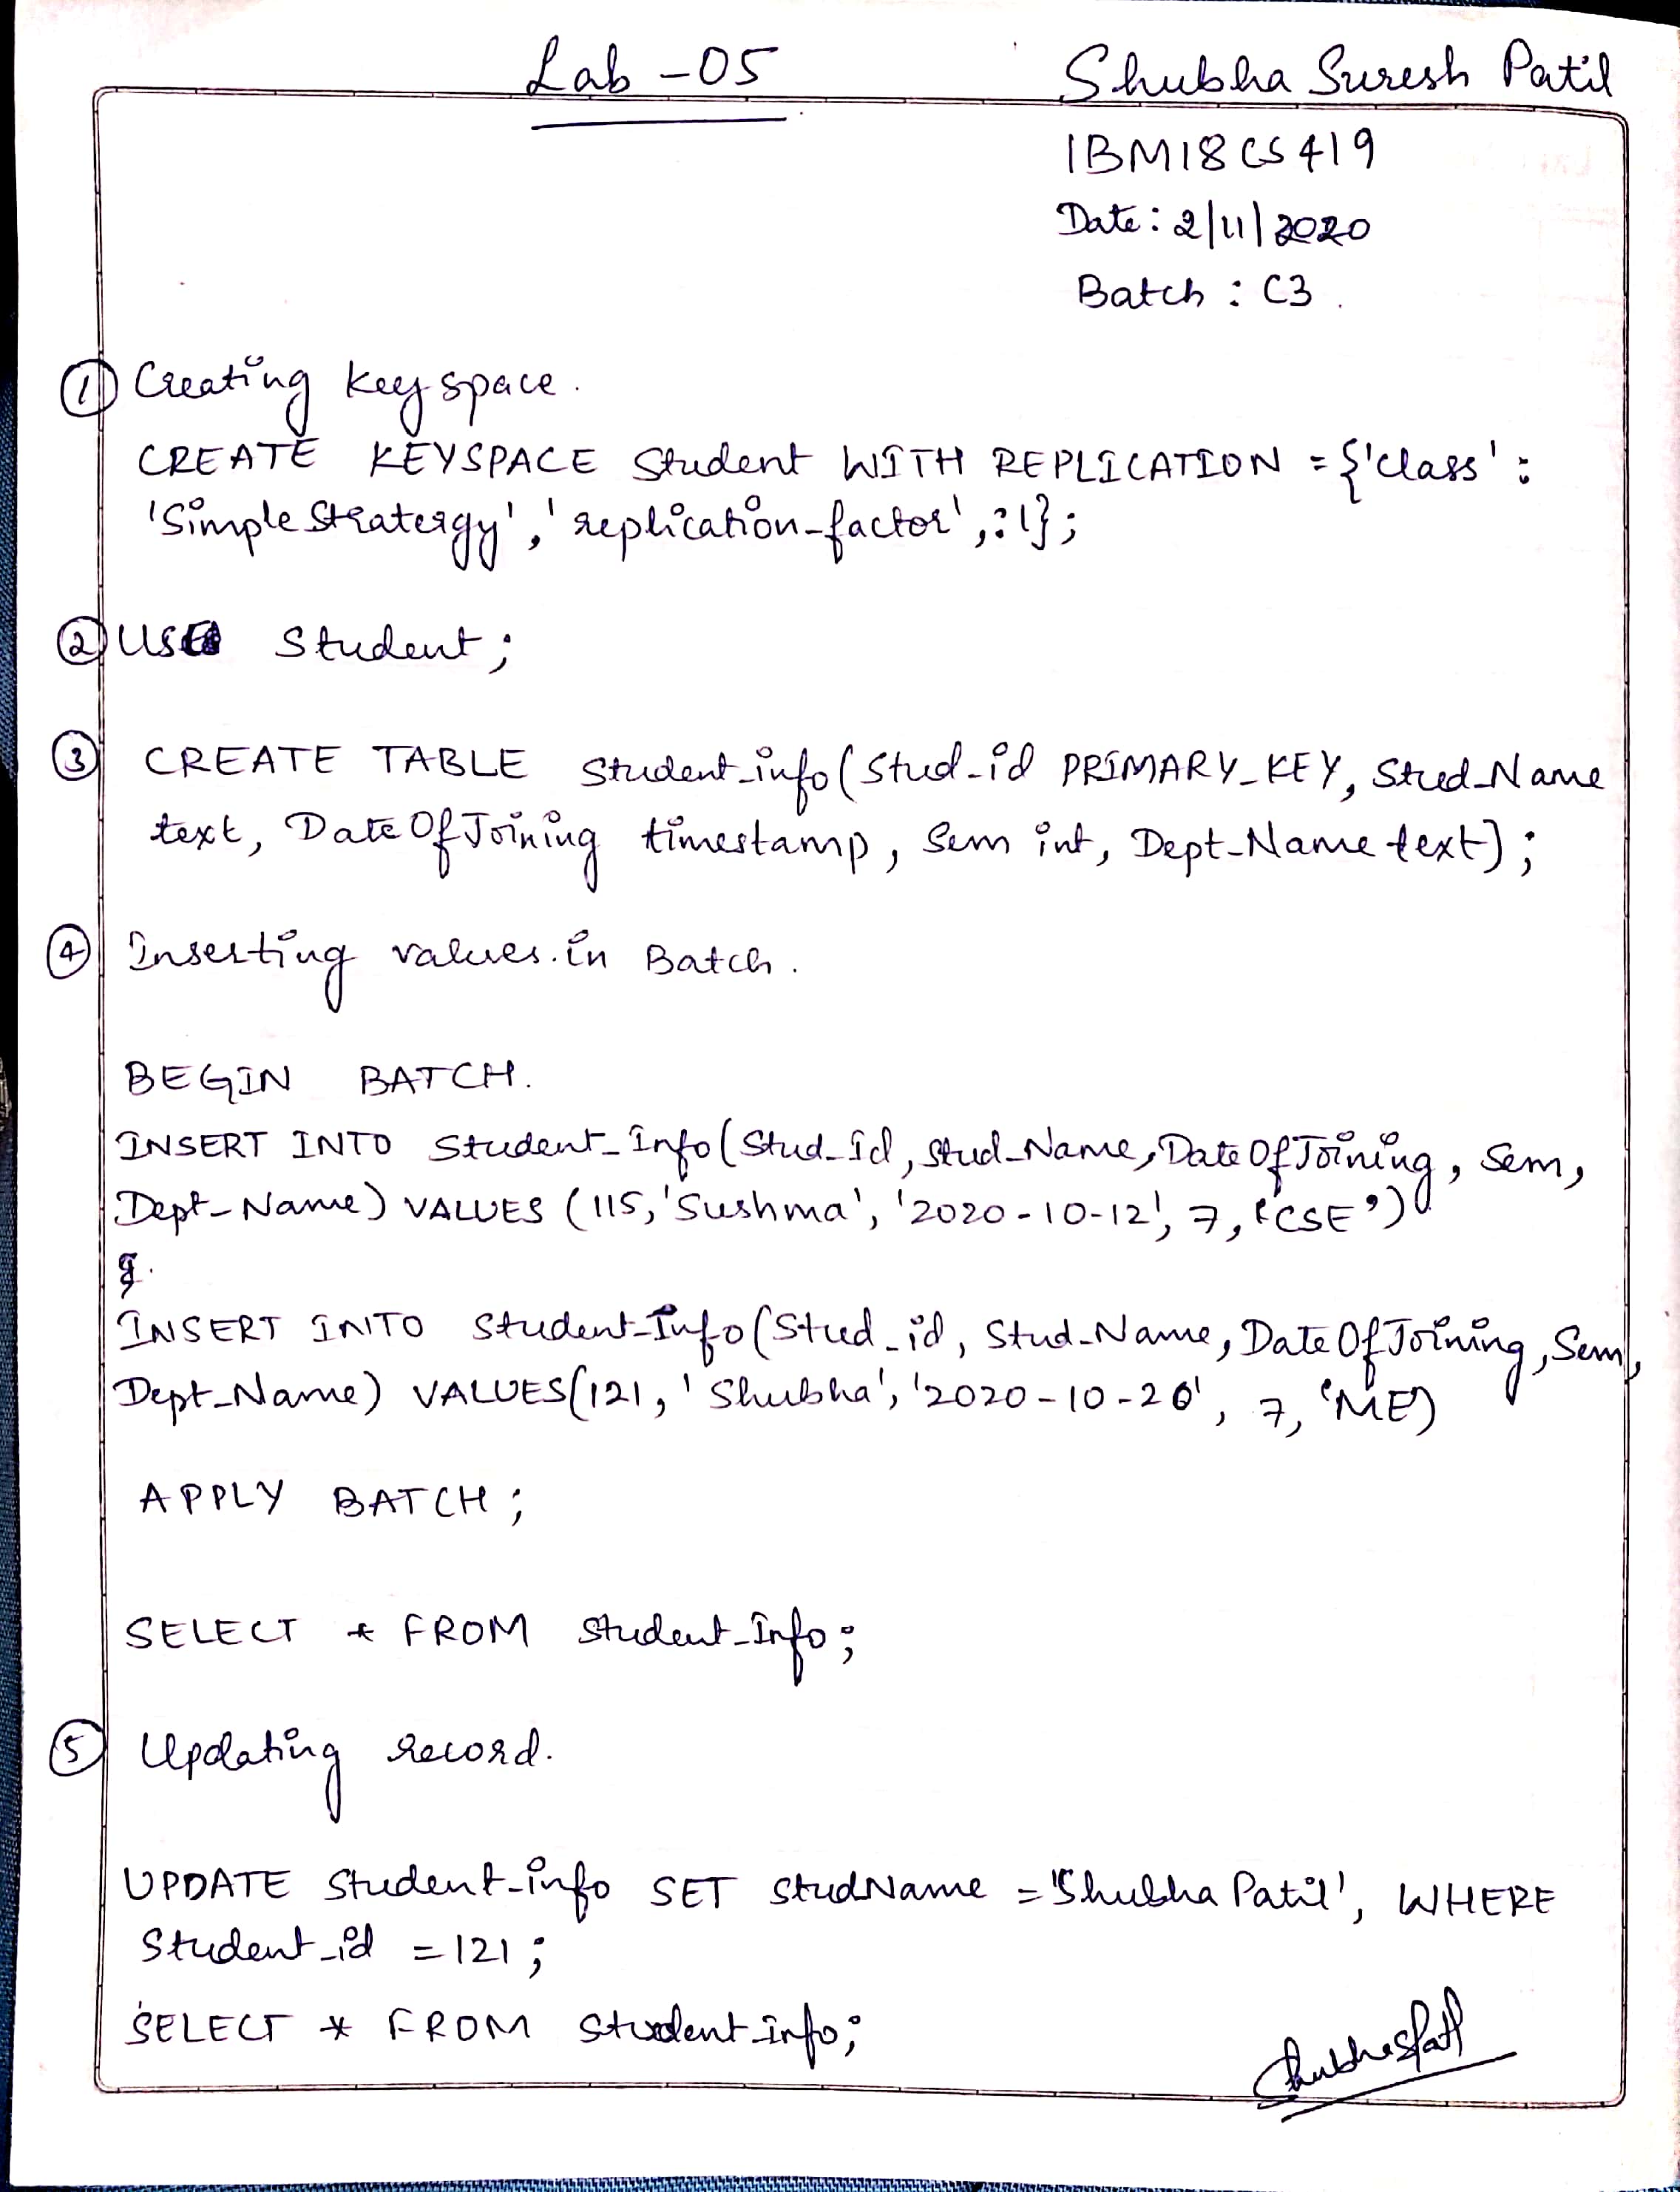 Lab - 05
Shubha Suresh Patil
1BM18CS419
Date: 2/11/2020
Batch : C3.
① Creating keyspace.
CREATE KEYSPACE Student WITH REPLICATION = {'class' :
'SimpleStratergy', 'replication_factor',:1};
② USE Student;
③ CREATE TABLE Student_info(Stud_id PRIMARY_KEY, Stud_Name
text, DateOfJoining timestamp, Sem int, Dept_Name text);
④ Inserting values.in Batch.
BEGIN BATCH.
INSERT INTO Student_Info(Stud_Id, Stud_Name, DateOfJoining, Sem,
Dept_Name) VALUES (115,'Sushma', '2020-10-12', 7, 'CSE')
INSERT INTO Student_Info(Stud_id, Stud_Name, DateOfJoining, Sem,
Dept_Name) VALUES(121, 'Shubha', '2020-10-26', 7, 'ME)
APPLY BATCH;
SELECT * FROM Student_Info;
⑤ Updating record.
UPDATE Student_info SET StudName = 'Shubha Patil', WHERE
Student_id = 121;
SELECT * FROM Student_info;